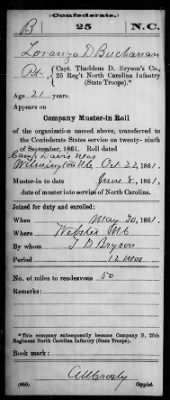 Confederate.
B 25 N.C.
Loranza D Buchanan
Pvt. Capt. Thaddeus D. Bryson's Co.,
25 Reg't North Carolina Infantry
(State Troops).*
Age 21 years.
Appears on
Company Muster-in Roll
of the organization named above, transferred to
the Confederate States service on twenty-ninth
of September, 1861. Roll dated
Camp Davis near
Wilmington NC Oct 22, 1861.
Muster-in to date June 8, 1861,
date of muster into service of North Carolina.
Joined for duty and enrolled:
When May 30, 1861.
Where Webster NC
By whom T D Bryson
Period 12 mos
No. of miles to rendezvous 50
Remarks:
*This company subsequently became Company B, 25th
Regiment North Carolina Infantry (State Troops).
Book mark:
(655) Copyist.